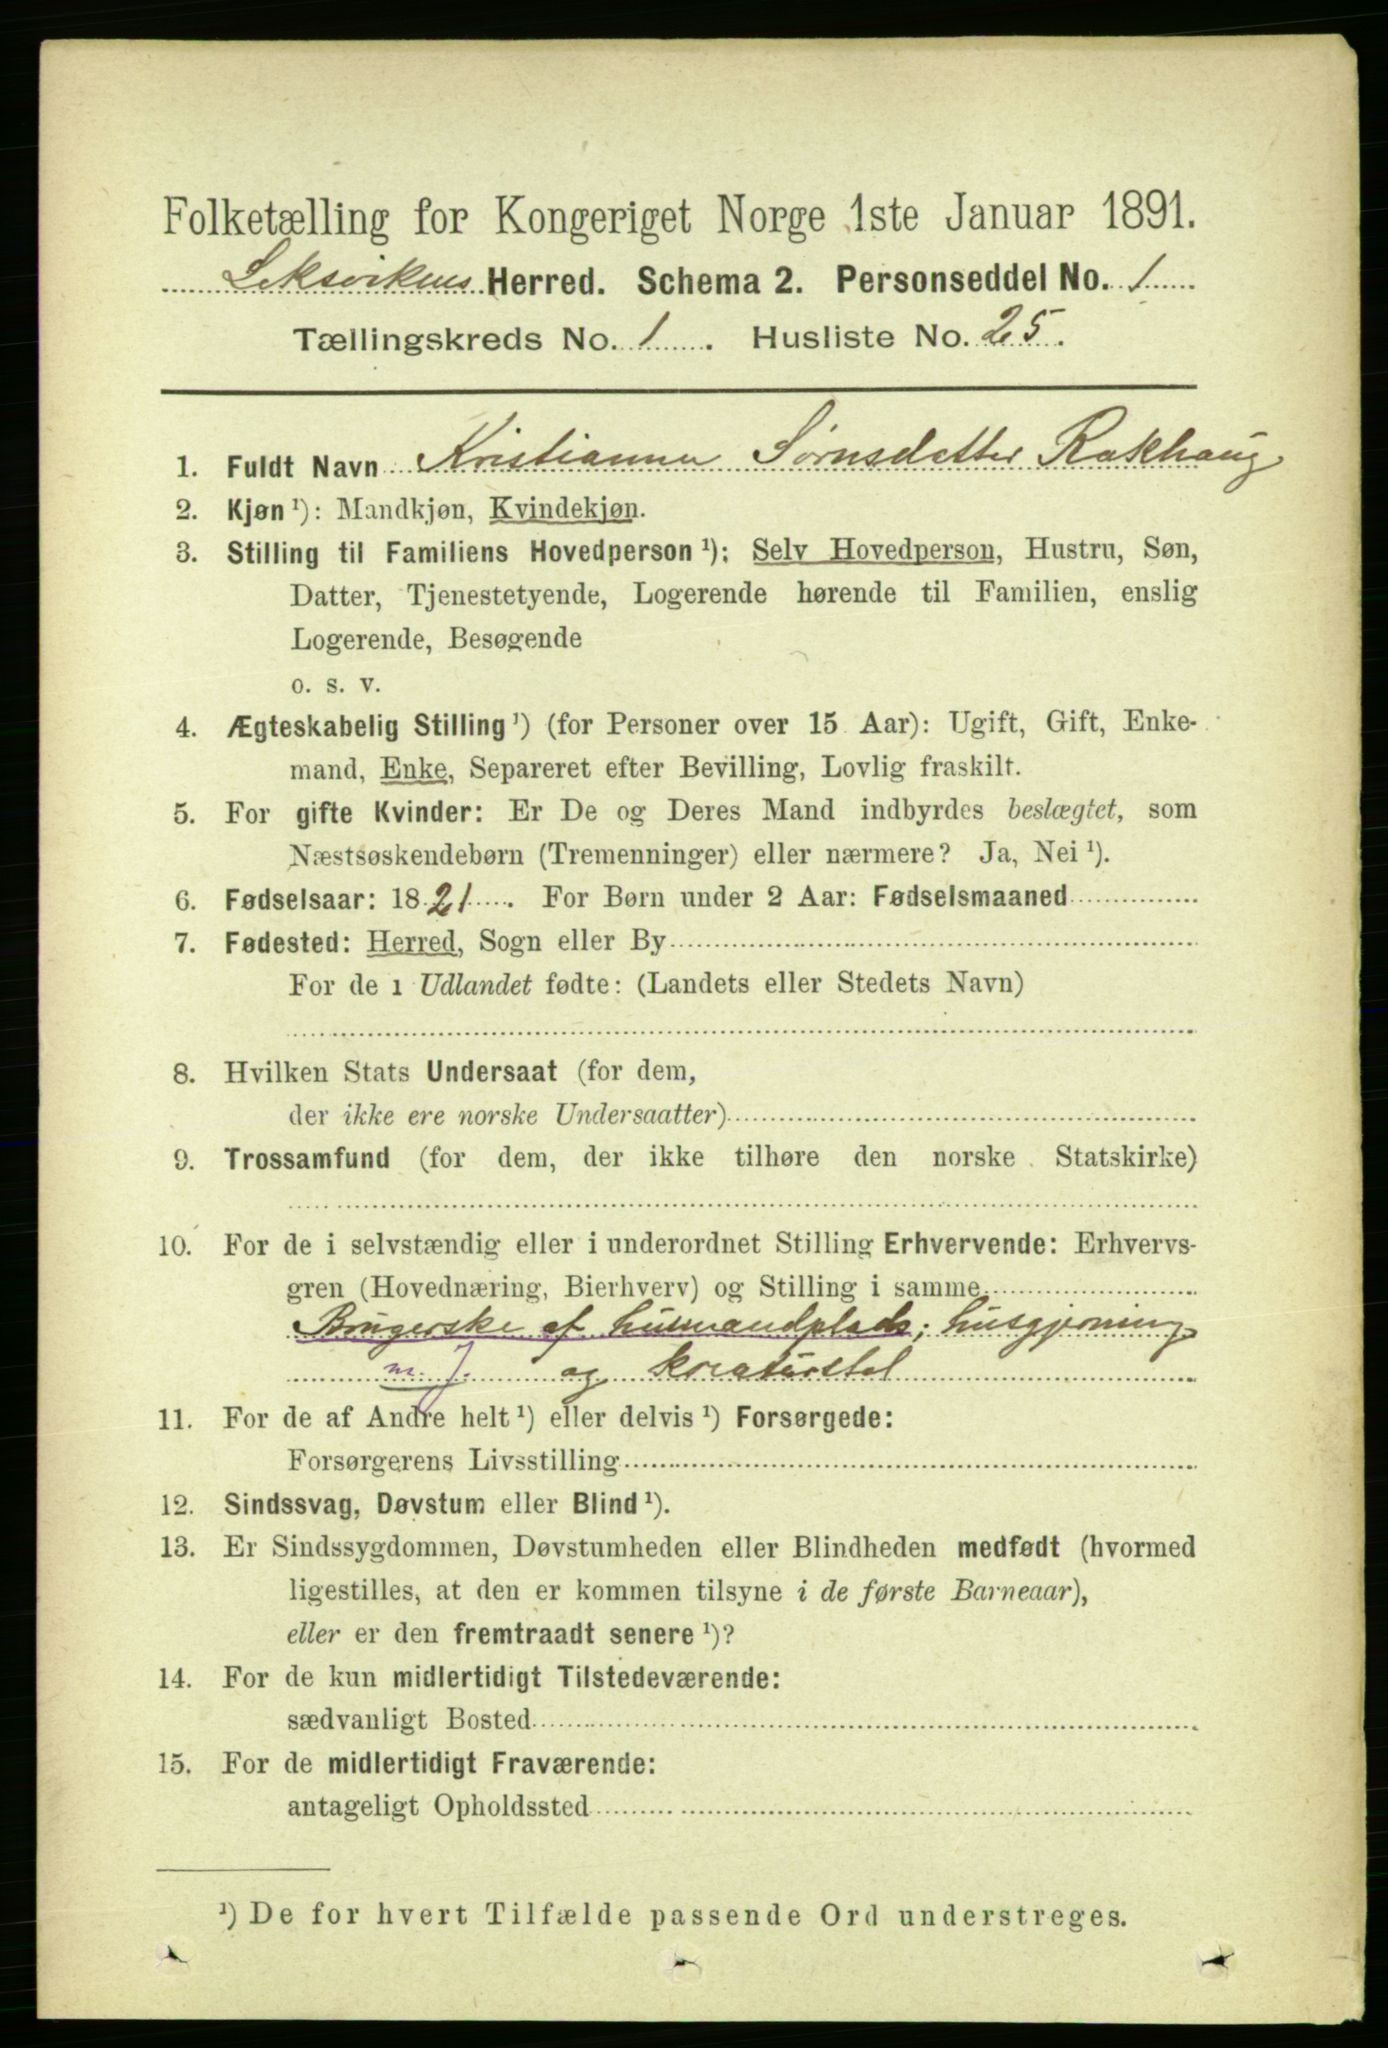 Folketælling for Kongeriget Norge 1ste Januar 1891.
Leksvikens Herred. Schema 2. Personseddel No. 1
Tællingskreds No. 1. Husliste No. 25.
1. Fuldt Navn Kristianna Sørnsdatter Rakhaug
2. Kjøn ¹): Mandkjøn, Kvindekjøn.
3. Stilling til Familiens Hovedperson ¹): Selv Hovedperson, Hustru, Søn,
Datter, Tjenestetyende, Logerende hørende til Familien, enslig
Logerende, Besøgende
o. s. v.
4. Ægteskabelig Stilling ¹) (for Personer over 15 Aar): Ugift, Gift, Enke-
mand, Enke, Separeret efter Bevilling, Lovlig fraskilt.
5. For gifte Kvinder: Er De og Deres Mand indbyrdes beslægtet, som
Næstsøskendebørn (Tremenninger) eller nærmere? Ja, Nei ¹).
6. Fødselsaar: 1821. For Børn under 2 Aar: Fødselsmaaned
7. Fødested: Herred, Sogn eller By
For de i Udlandet fødte: (Landets eller Stedets Navn)
8. Hvilken Stats Undersaat (for dem,
der ikke ere norske Undersaatter)
9. Trossamfund (for dem, der ikke tilhøre den norske Statskirke)
10. For de i selvstændig eller i underordnet Stilling Erhvervende: Erhvervs-
gren (Hovednæring, Bierhverv) og Stilling i samme
Brugerske af husmandplads; husgjerning
m. J. og kreaturstel
11. For de af Andre helt ¹) eller delvis ¹) Forsørgede:
Forsørgerens Livsstilling
12. Sindssvag, Døvstum eller Blind ¹).
13. Er Sindssygdommen, Døvstumheden eller Blindheden medfødt (hvormed
ligestilles, at den er kommen tilsyne i de første Barneaar),
eller er den fremtraadt senere ¹)?
14. For de kun midlertidigt Tilstedeværende:
sædvanligt Bosted
15. For de midlertidigt Fraværende:
antageligt Opholdssted
¹) De for hvert Tilfælde passende Ord understreges.